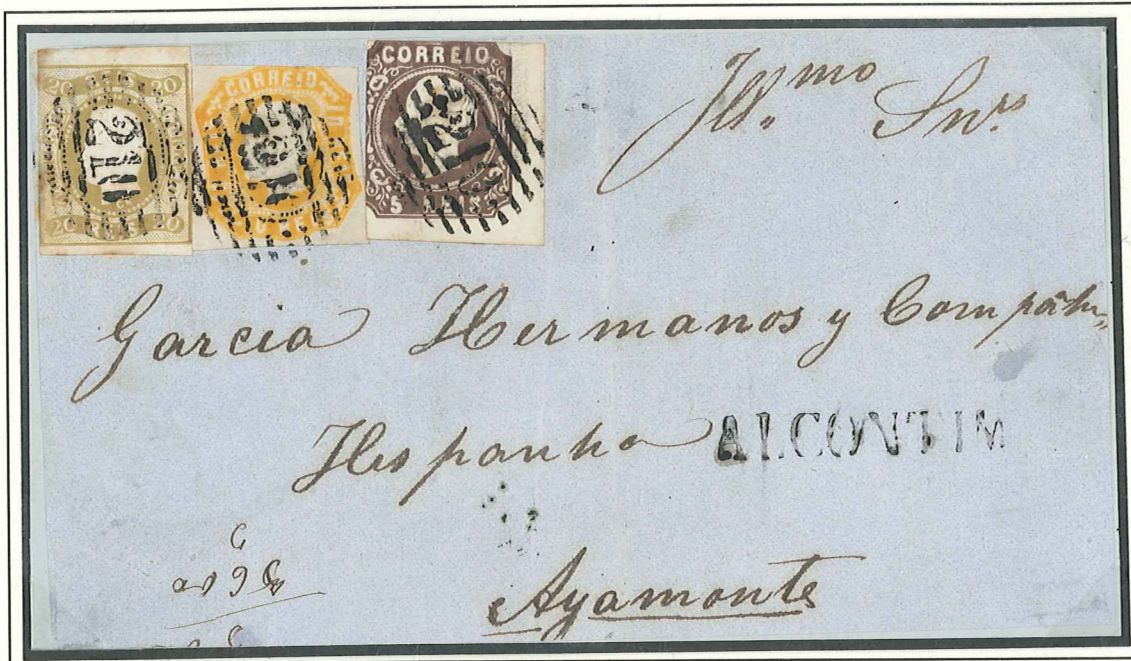 20 REIS 20
20 REIS 20
CORREIO
CORREIO
5 REIS
Ill.mo Snrs
Garcia Hermanos y
Hespanha ALCONTIM
Ayamonte